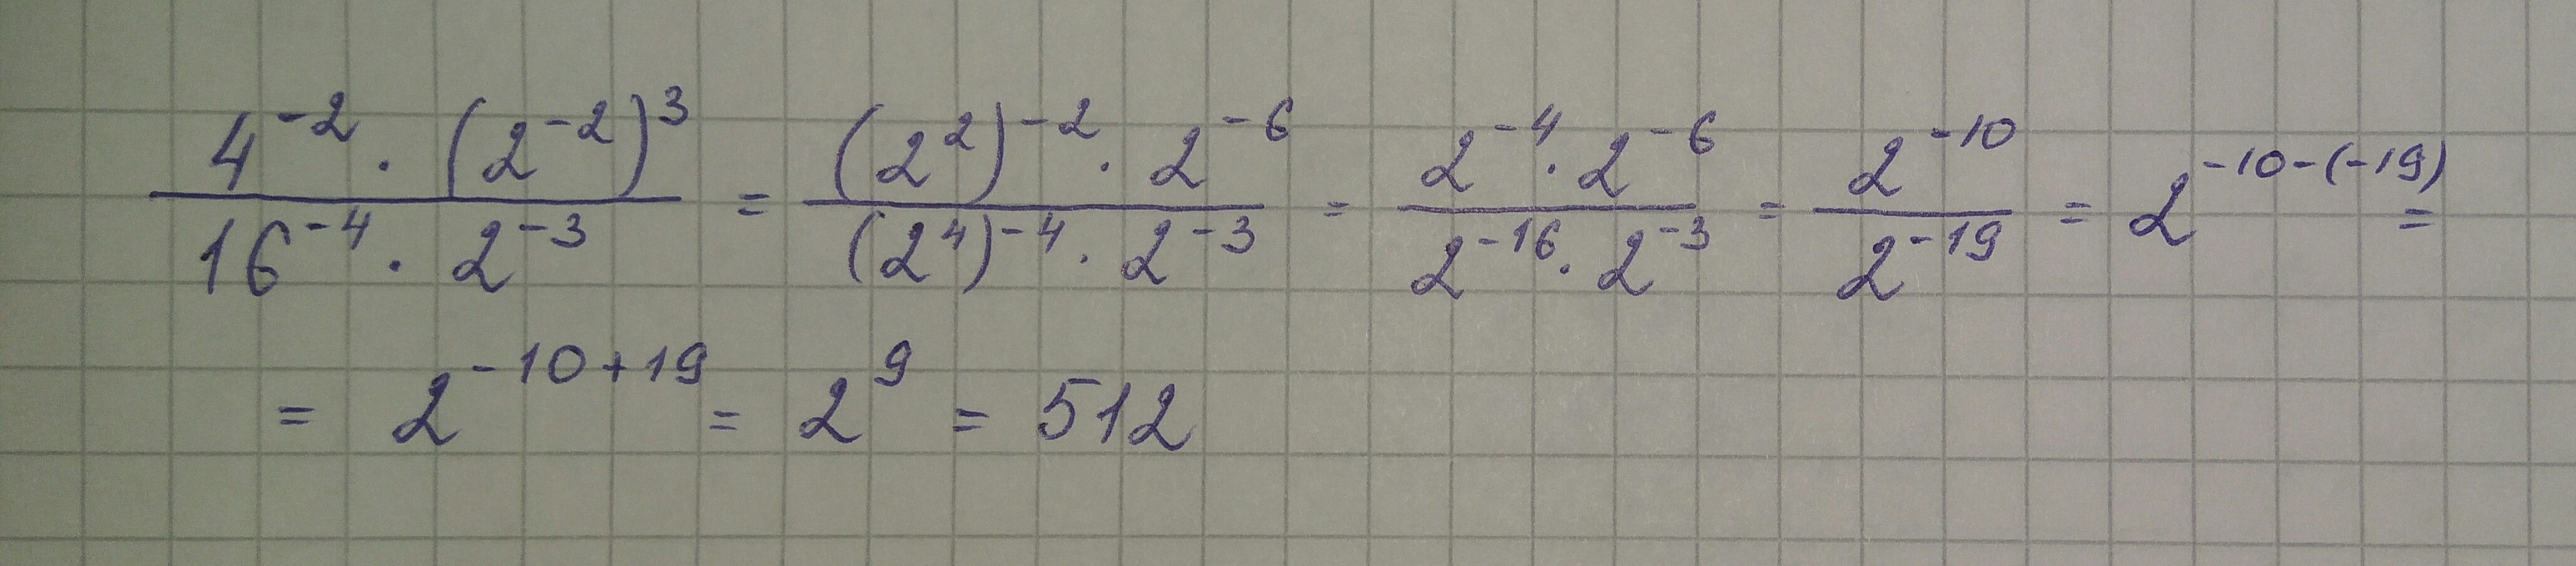 \frac{4^{-2} \cdot (2^{-2})^3}{16^{-4} \cdot 2^{-3}} = \frac{(2^2)^{-2} \cdot 2^{-6}}{(2^4)^{-4} \cdot 2^{-3}} = \frac{2^{-4} \cdot 2^{-6}}{2^{-16} \cdot 2^{-3}} = \frac{2^{-10}}{2^{-19}} = 2^{-10-(-19)} =
= 2^{-10+19} = 2^9 = 512